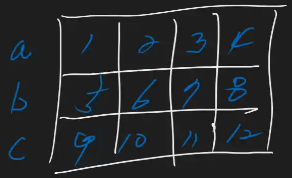 a 1 2 3 4
b 5 6 7 8
c 9 10 11 12